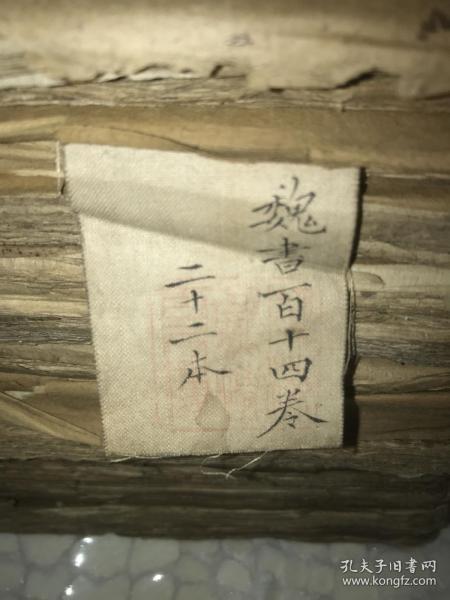 魏書百十四卷
二十二本
孔夫子旧书网
www.kongfz.com